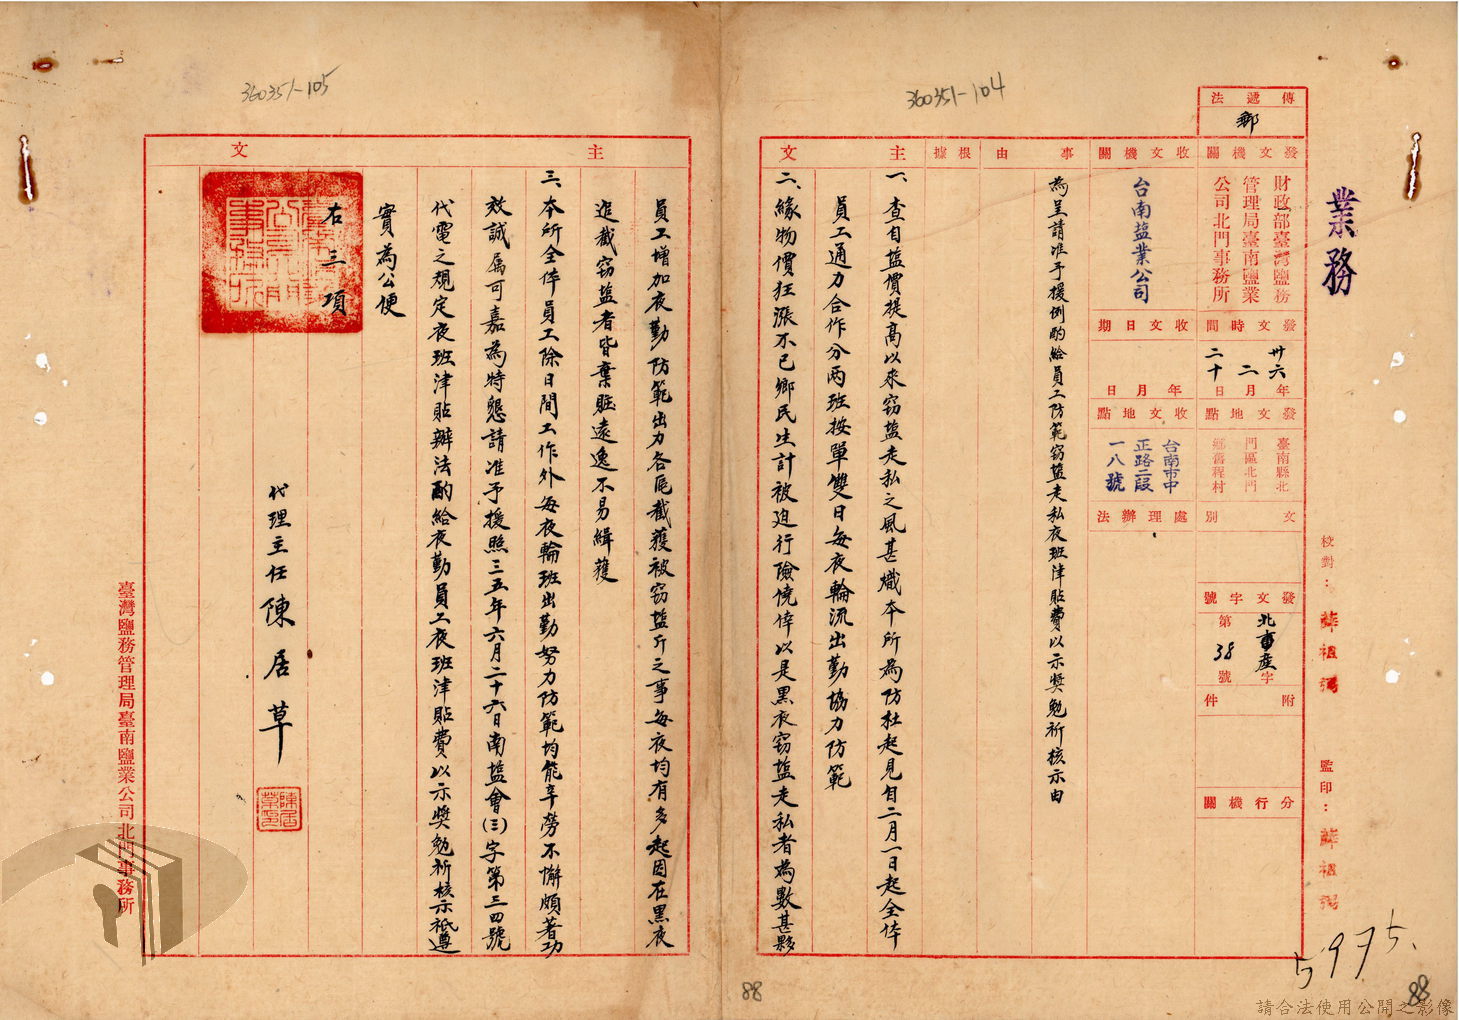 360351-105
360351-104
業務
校對：
監印：
5975.
傳遞法
郵
發文機關
財政部臺灣鹽務
管理局臺南鹽業
公司北門事務所
發文時間
卅六年
二月
二十日
發文地點
臺南縣北
門區北門
鄉舊埕村
文別
發文字號
北事産字
第38號
附件
分行機關
收文機關
台南盐業公司
收文日期
年月日
收文地點
台南市中
正路二段
一八號
處理辦法
事由
為呈請准予援例酌給員工防範窃盐走私夜班津貼費以示奬勉祈核示由
根據
主文
一、查自盐價提高以來窃盐走私之風甚熾本所為防杜起見自二月一日起全体
員工通力合作分兩班按單雙日每夜輪流出勤協力防範
二、緣物價狂漲不已鄉民生計被迫行險僥倖以是黑夜窃盐走私者為數甚夥
主文
員工增加夜勤防範出力各尾截獲被窃盐斤之事每夜均有多起因在黑夜
追截窃盐者皆棄賍遠逸不易緝獲
三、本所全体員工除日間工作外每夜輪班出勤努力防範均能辛勞不懈頗著功
效誠属可嘉為特懇請准予援照三五年六月二十六日南盐會(三)字第三四號
代電之規定夜班津貼辦法酌給夜勤員工夜班津貼費以示奬勉祈核示祇遵
實為公便
右三項
代理主任陳居草
陳居草印
臺灣鹽務管理局臺南鹽業公司北門事務所
88
88
請合法使用公開之影像